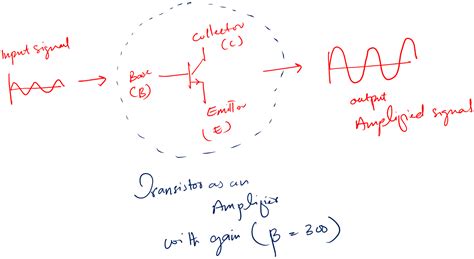 Input signal
Collector
(C)
Base
(B)
Emitter
(E)
output
Amplified signal
Transistor as an
Amplifier
with gain (β = 300)